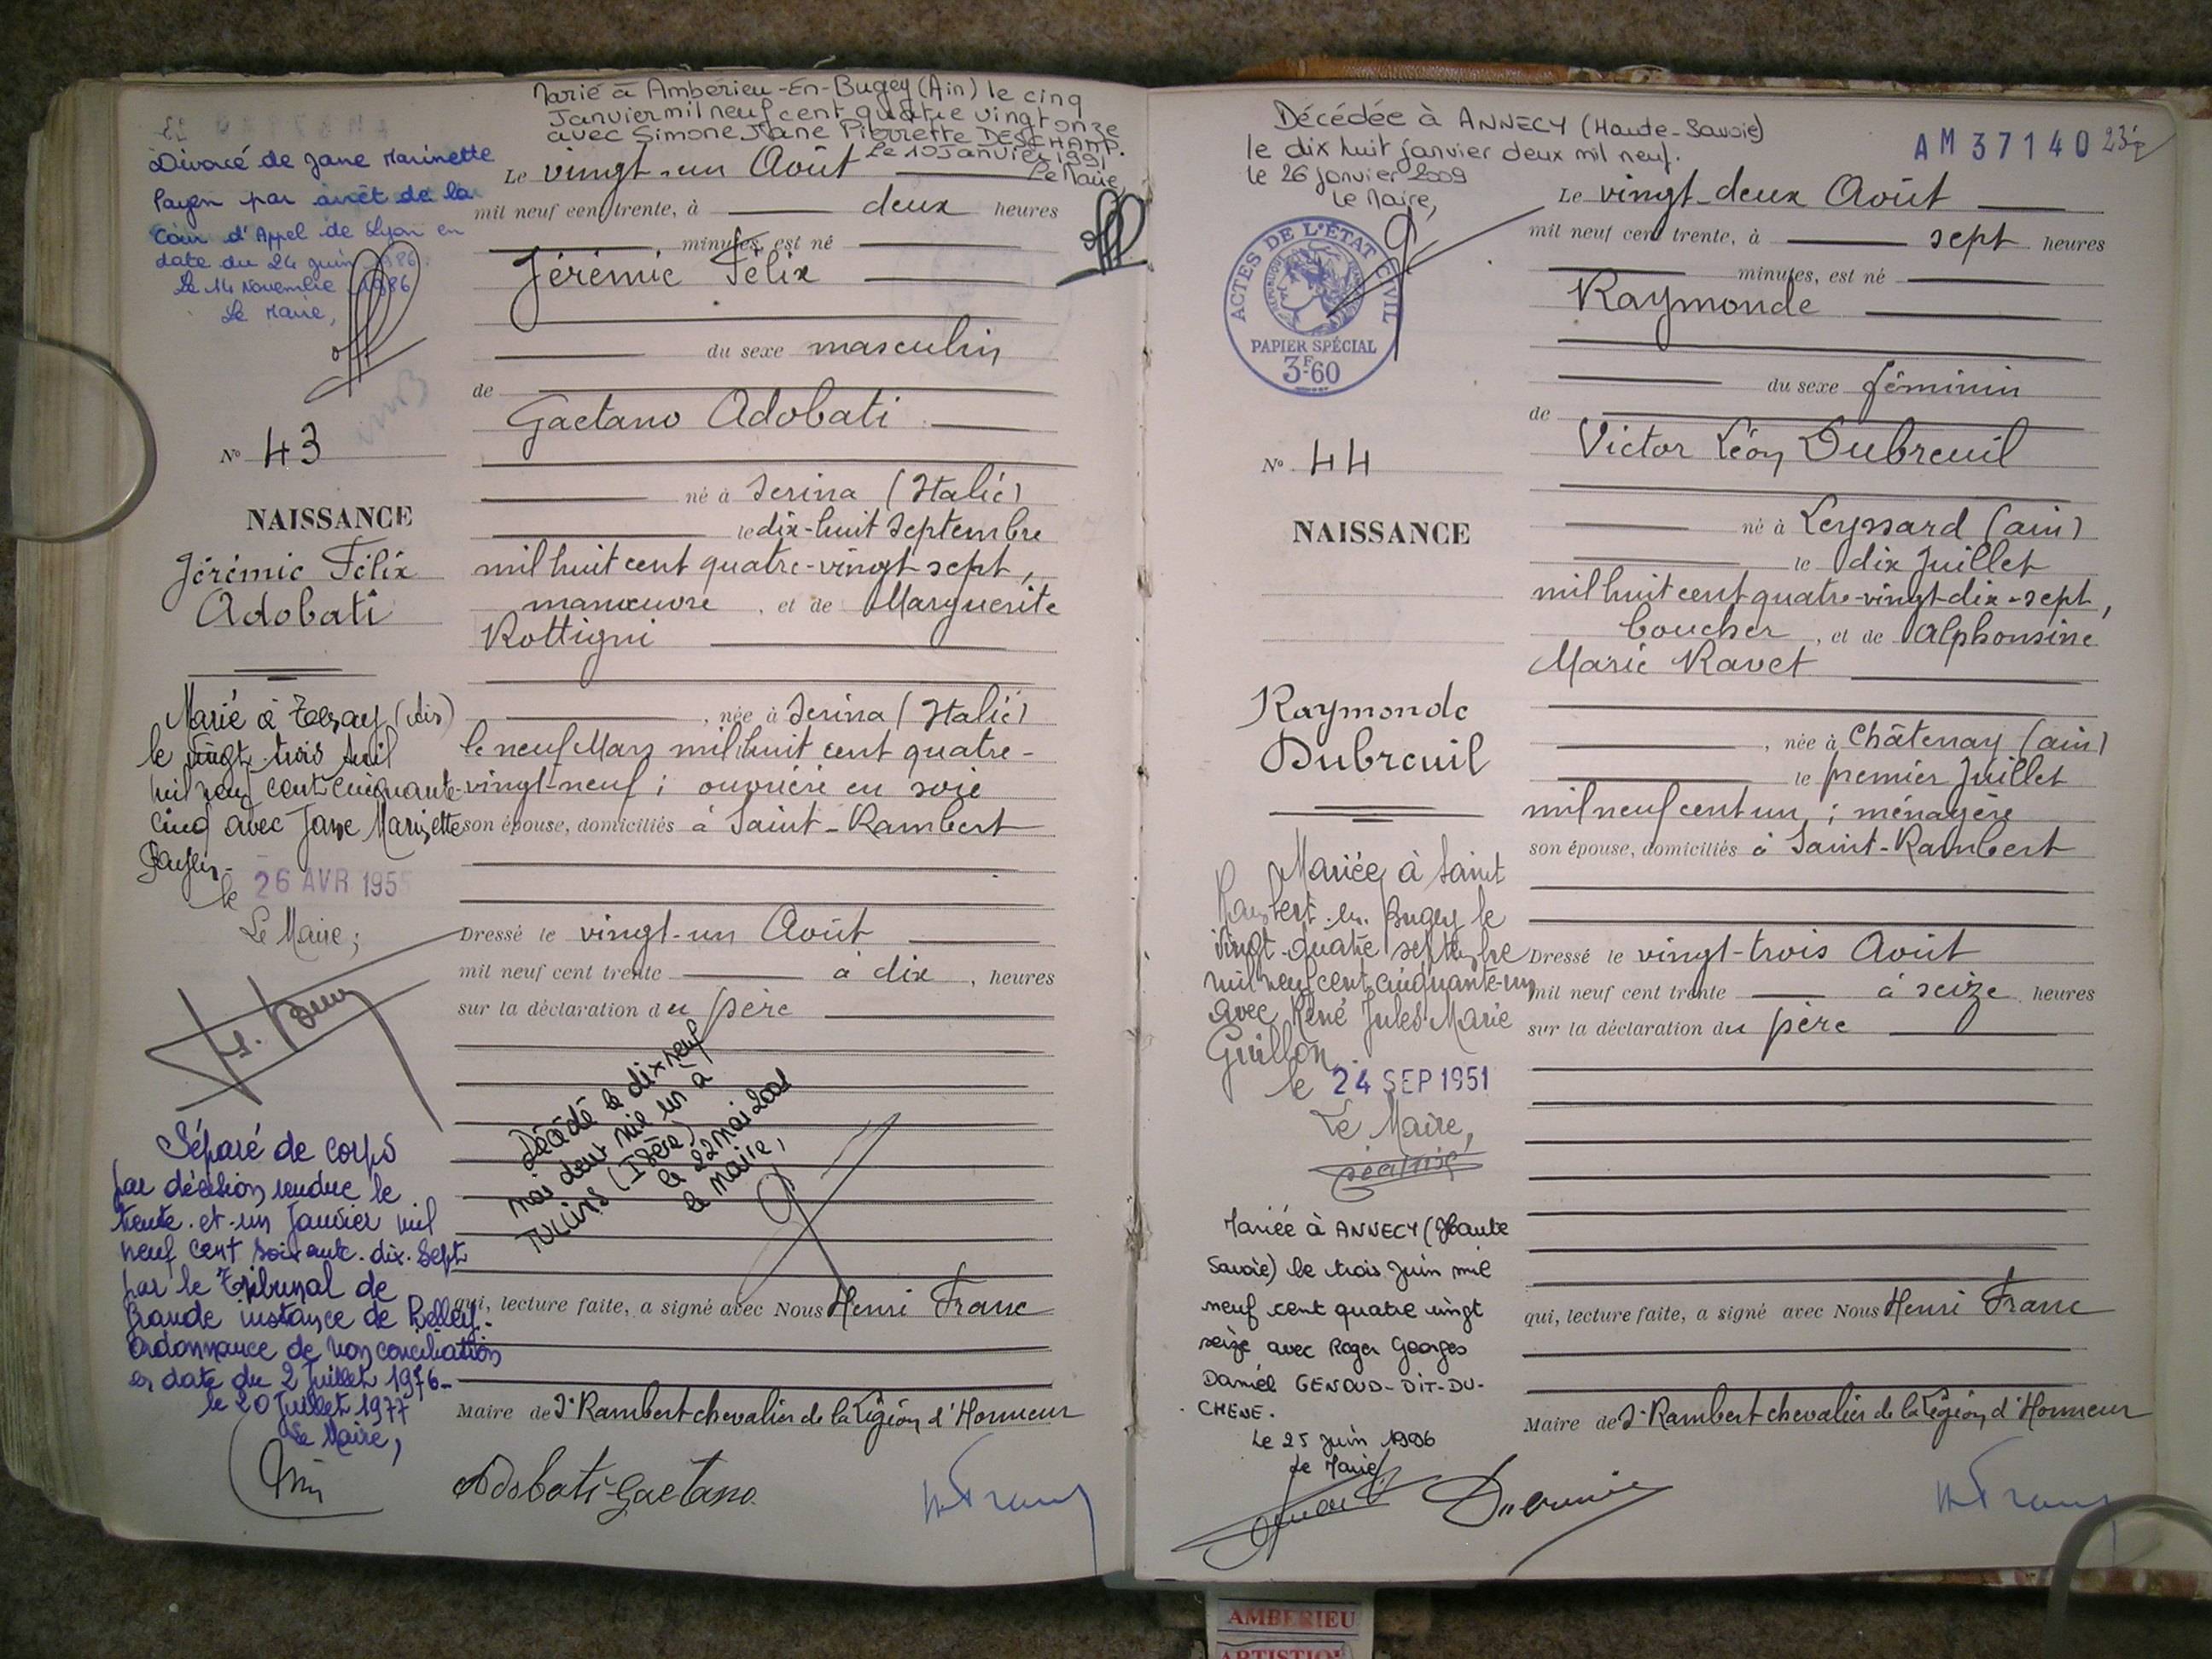 Marié à Ambérieu-En-Bugey (Ain) le cinq
Janvier mil neuf cent quatre vingt onze
avec Simone Jane Pierrette DESCHAMP.
Le 10 Janvier 1991
Le Maire,
Divorcé de Jane Marinette
Payen par arrêt de la
Cour d'Appel de Lyon en
date du 24 juin 1986.
Le 14 Novembre 1986
Le Maire,
N° 43
NAISSANCE
Jérémie Félix
Adobati
Marié à Torcieu (Ain)
le vingt-trois Avril
mil neuf cent cinquante-
cinq avec Jane Marinette
Payen.
le 26 AVR 1955
Le Maire;
Séparé de corps
par décision rendue le
trente-et-un Janvier mil
neuf cent soixante-dix-sept
par le Tribunal de
Grande instance de Belley.
Ordonnance de non conciliation
en date du 2 Juillet 1976-
le 20 Juillet 1977
Le Maire,
Le vingt-un Août
mil neuf cent trente, à deux heures
minutes, est né
Jérémie Félix
du sexe masculin
de
Gaetano Adobati
né à Serina (Italie)
le dix-huit Septembre
mil huit cent quatre-vingt sept,
manœuvre, et de Marguerite
Rottigni
, née à Serina (Italie)
le neuf Mars mil huit cent quatre-
vingt-neuf; ouvrière en soie
son épouse, domiciliés à Saint-Rambert
Dressé le vingt-un Août
mil neuf cent trente à dix, heures
sur la déclaration du père
Décédé le dix neuf
mai deux mil un à
TULLINS (Isère)
le 22 mai 2001
le Maire,
qui, lecture faite, a signé avec Nous Henri Franc
Maire de St Rambert chevalier de la Légion d'Honneur
Adobati-Gaetano
H. Franc
Décédée à ANNECY (Haute-Savoie)
le dix huit janvier deux mil neuf.
le 26 janvier 2009
Le Maire,
AM 37140
ACTES DE L'ÉTAT CIVIL
PAPIER SPÉCIAL
3F60
N° 44
NAISSANCE
Raymonde
Dubreuil
Mariée à Saint
Rambert-en-Bugey le
vingt-quatre septembre
mil neuf cent cinquante-un
avec René Jules Marie
Guillon
le 24 SEP 1951
Le Maire,
Mariée à ANNECY (Haute
Savoie) le trois juin mil
neuf cent quatre vingt
seize avec Roger Georges
Daniel GENOUD-DIT-DU-
CHENE.
Le 25 juin 1996
Le Maire
Le vingt-deux Août
mil neuf cent trente, à sept heures
minutes, est né
Raymonde
du sexe féminin
de
Victor Léon Dubreuil
né à Leyssard (ain)
le dix Juillet
mil huit cent quatre-vingt-dix-sept,
boucher, et de Alphonsine
Marie Ravet
, née à Châtenay (ain)
le premier Juillet
mil neuf cent un; ménagère
son épouse, domiciliés à Saint-Rambert
Dressé le vingt-trois Août
mil neuf cent trente à seize heures
sur la déclaration du père
qui, lecture faite, a signé avec Nous Henri Franc
Maire de St Rambert chevalier de la Légion d'Honneur
Dubreuil
H. Franc
AMBERIEU